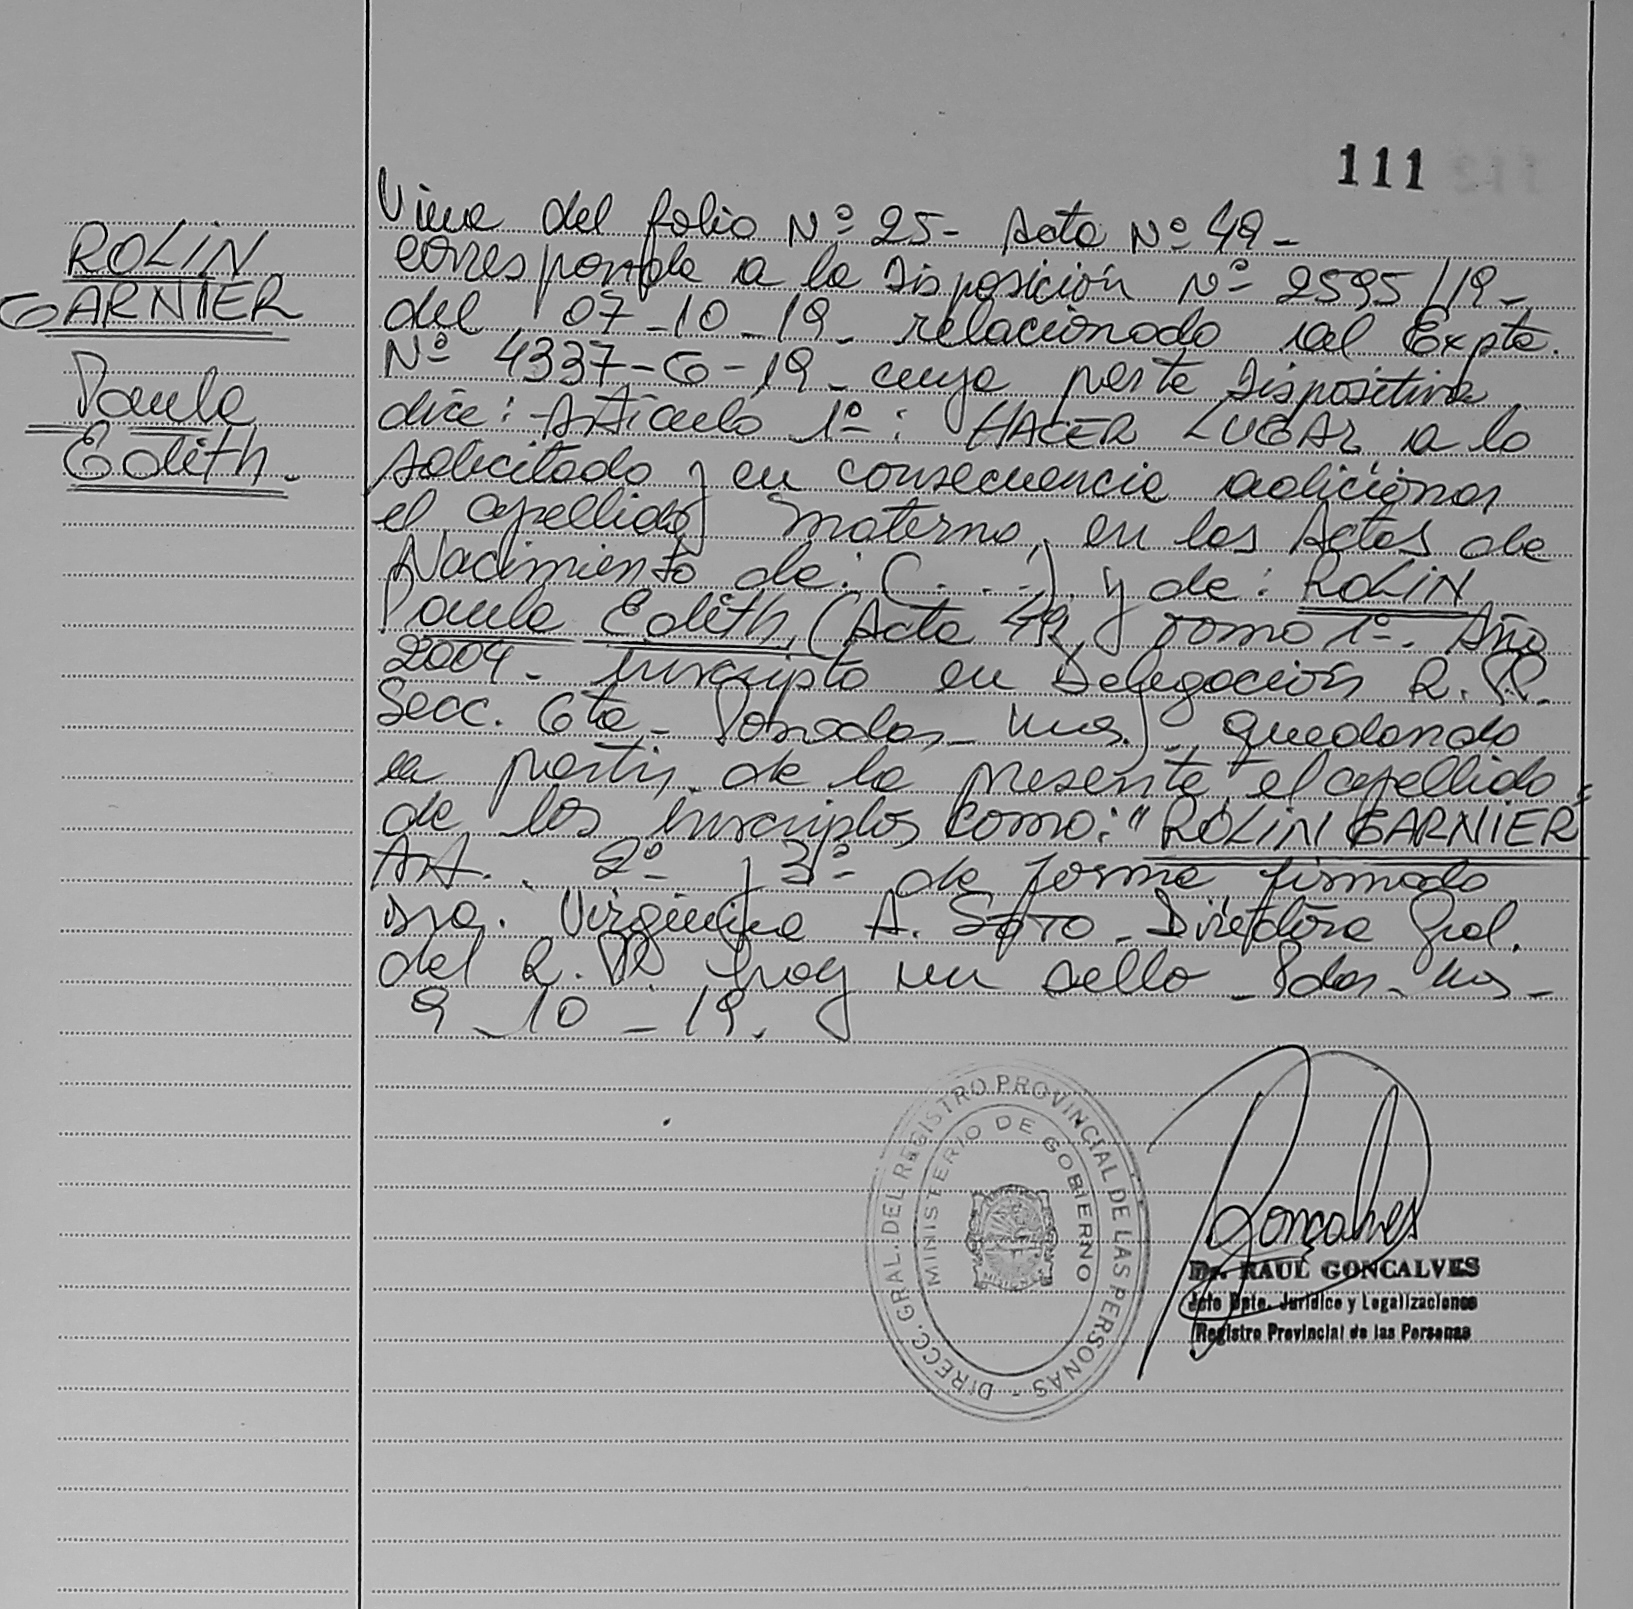 111
ROLIN
GARNIER
Paula
Edith.
Viene del folio Nº 25- Acta Nº 49-
corresponde a la Disposición Nº 2595/19-
del 07-10-19- relacionado al Expte.
Nº 4337-G-19- cuya parte Dispositiva
dice: Artículo 1º: HACER LUGAR a lo
solicitado y en consecuencia adicionar
el apellido materno, en las Actas de
Nacimiento de: (...) y de: ROLIN
Paula Edith, (Acta 49, Tomo 1º. Año
2004- inscripto en Delegación R. P.
Secc. 6ta- Posadas- Mnes.) quedando
a partir de la presente el apellido
de los inscriptos como: "ROLIN GARNIER"
Art. 2º y 3º de forma firmado
Dra. Virginia A. SOTO- Directora Gral.
del R. P. hay un sello- Pdas- Mns-
9-10-19.
DIRECC. GRAL. DEL REGISTRO PROVINCIAL DE LAS PERSONAS -
MINISTERIO DE GOBIERNO
MISIONES
Goncalves
Dr. RAUL GONCALVES
Jefe Dpto. Jurídico y Legalizaciones
Registro Provincial de las Personas